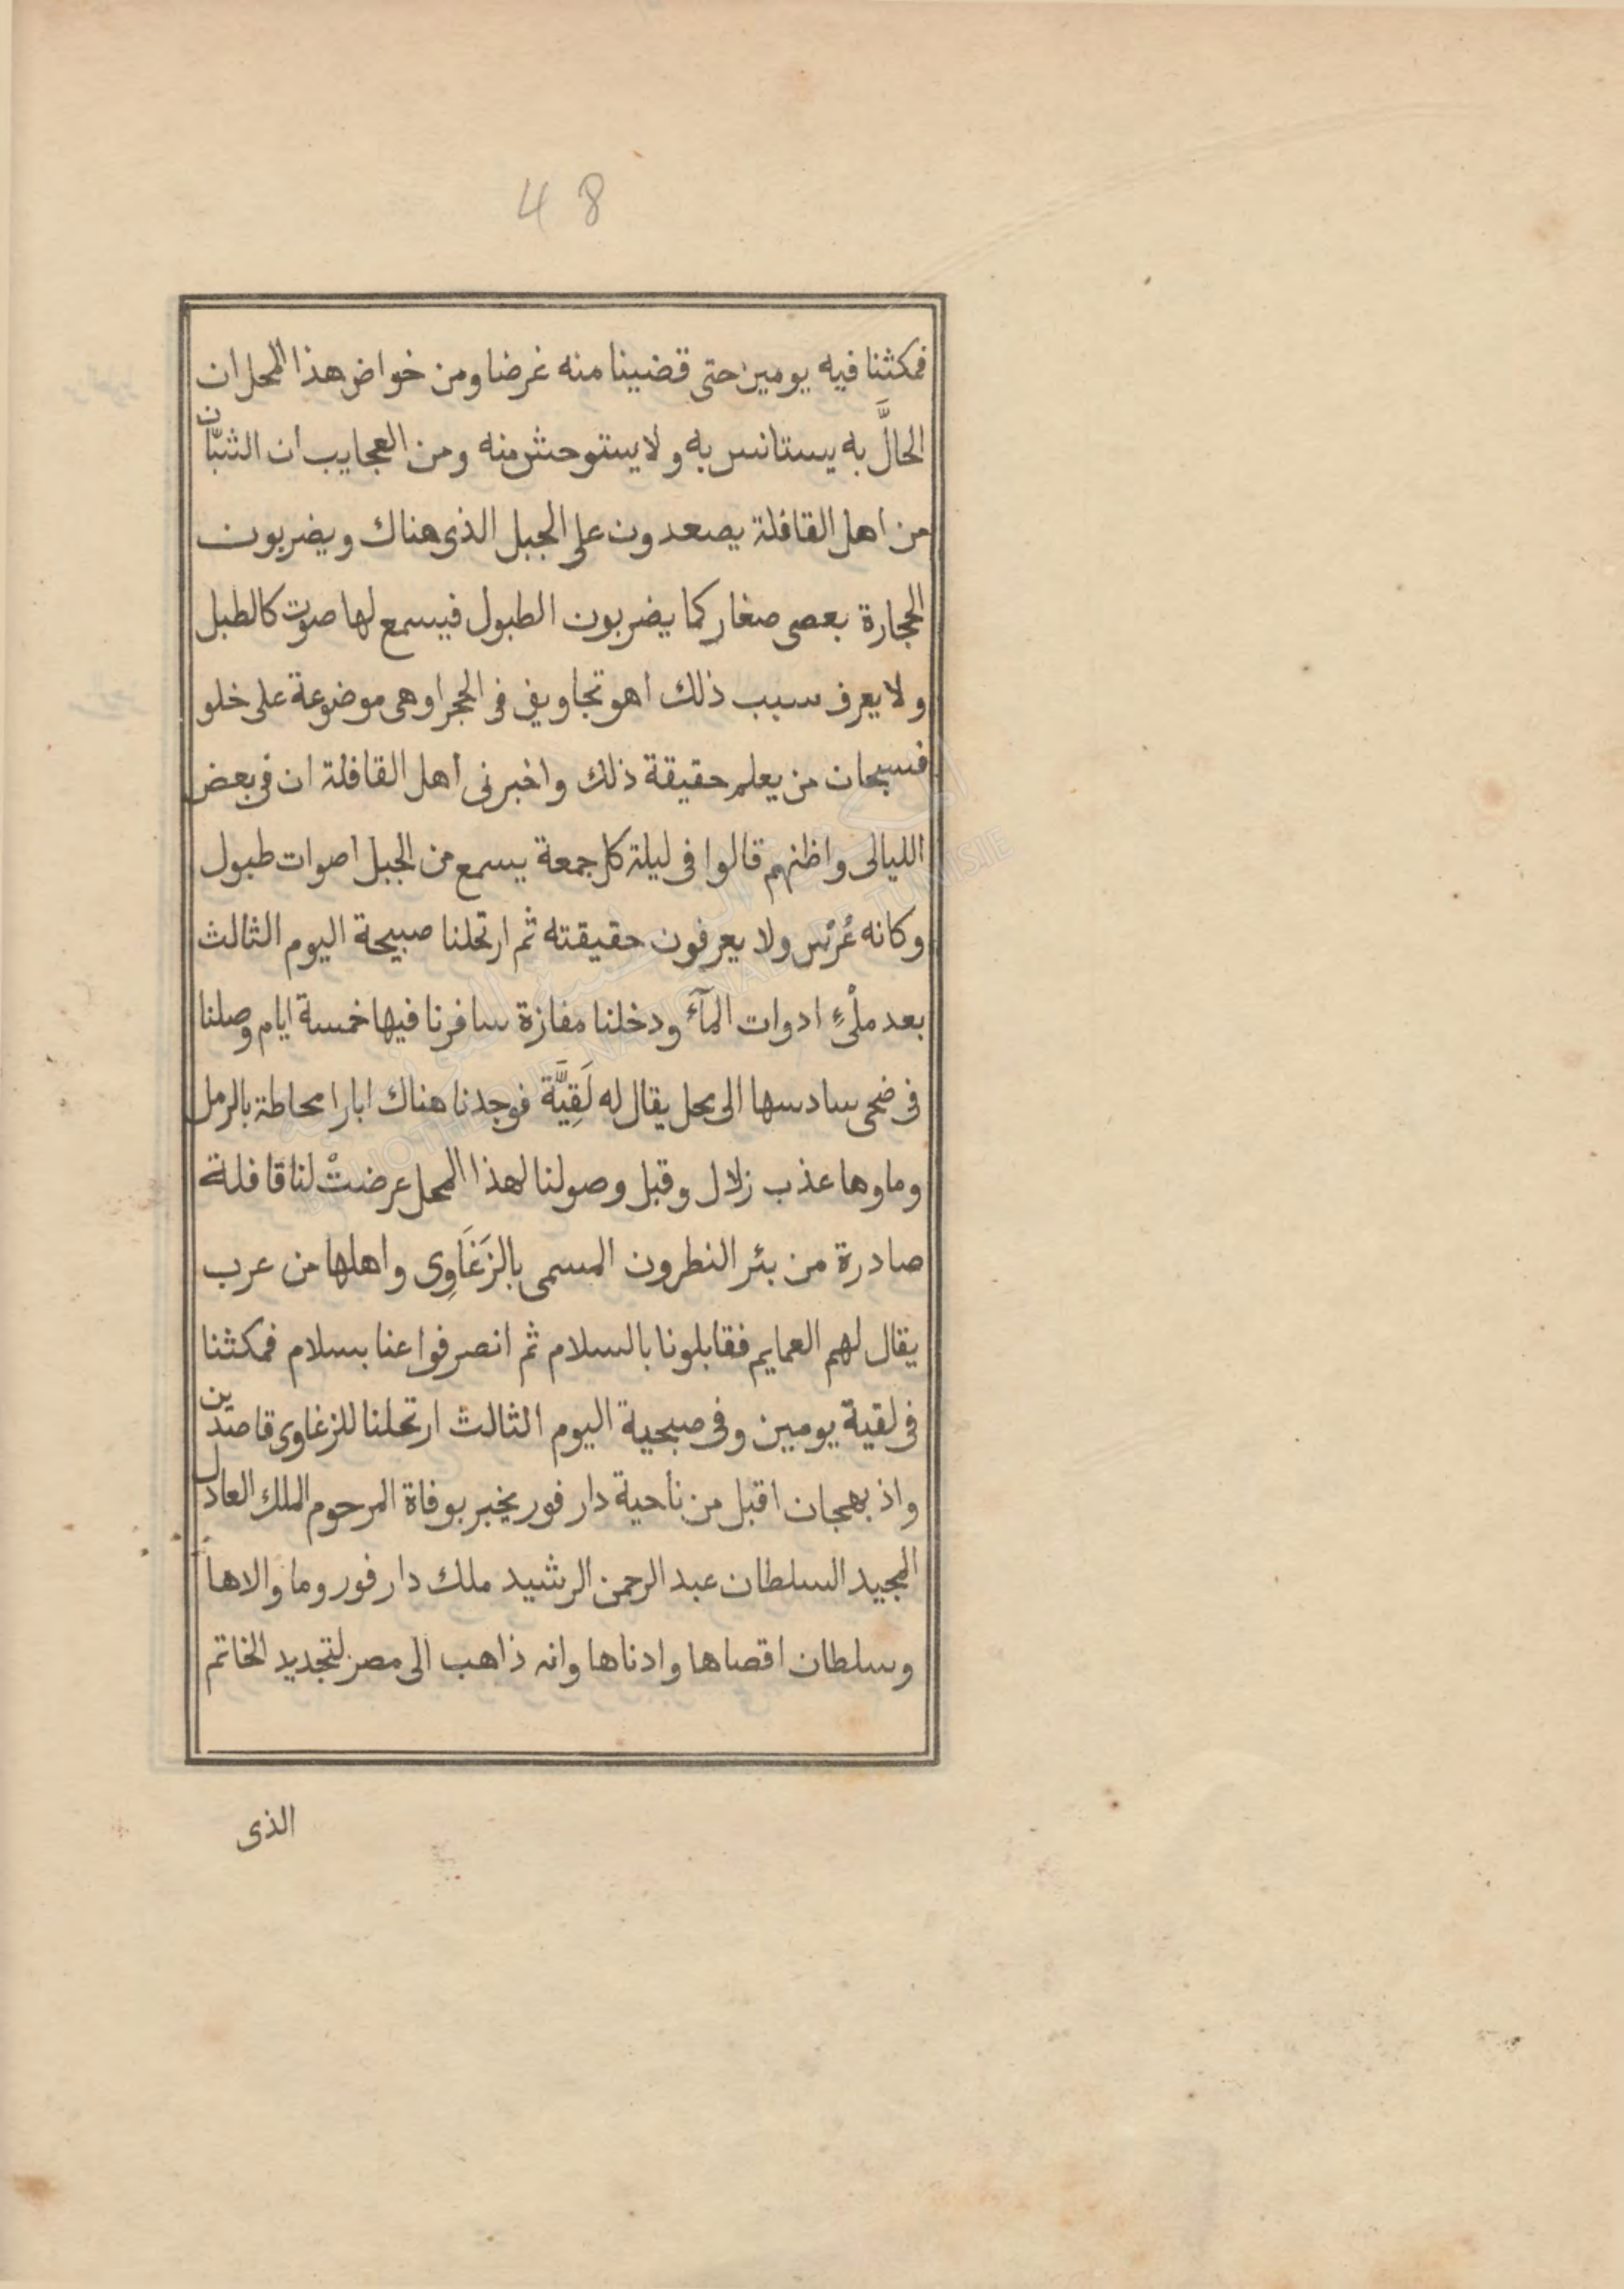 48
فمكثنا فيه يومين حتى قضينا منه غرضنا ومن خواص هذا المحل ان
الحالَّ به يستانس به ولا يستوحش منه ومن العجايب ان الشبّان
من اهل القافلة يصعدون على الجبل الذى هناك ويضربون
الحجارة بعصى صغار كما يضربون الطبول فيسمع لها صوت كالطبل
ولا يعرف سبب ذلك اهو تجاويف فى الحجر او هى موضوعة على خلو
فسبحان من يعلم حقيقة ذلك واخبرنى اهل القافلة ان فى بعض
الليالى واظنهم قالوا فى ليلة كل جمعة يسمع من الجبل اصوات طبول
وكانه عُرْس ولا يعرفون حقيقته ثم ارتحلنا صبيحة اليوم الثالث
بعد ملْىءِ ادوات المآء ودخلنا مفازة سافرنا فيها خمسة ايام وصلنا
فى ضحى سادسها الى محل يقال له لَقِيَّة فوجدنا هناك ابارا محاطة بالرمل
وماوها عذب زلال وقبل وصولنا لهذا المحل عرضتْ لنا قافلة
صادرة من بئر النطرون المسمى بالزَغَاوِى واهلها من عرب
يقال لهم العمايم فقابلونا بالسلام ثم انصرفوا عنا بسلام فمكثنا
فى لقية يومين وفى صبحية اليوم الثالث ارتحلنا للزغاوى قاصدين
واذ بهجان اقبل من ناحية دار فور يخبر بوفاة المرحوم الملك العادل
المجيد السلطان عبد الرحمن الرشيد ملك دار فور وما والاها
وسلطان اقصاها وادناها وانه ذاهب الى مصر لتجديد الخاتم
الذى